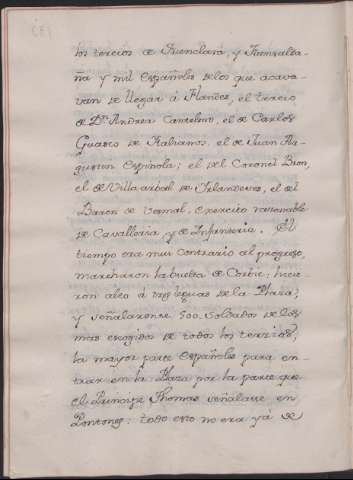 los tercios de Fuenclara, y Fuensalda-
ña y mil Españoles de los que acava-
van de llegar á Flandes, el tercio
de Dn. Andrea Cantelmo, el de Carlos
Guasco de Italianos, el de Juan Au-
gustin Espinola; el del Coronel Bron,
el de Villa arbal de Irlandeses, el del
Baron de Vamal, exercito razonable
de Cavalleria y de Infanteria. El
tiempo era mui contrario al progreso,
marcharon la buelta de Corbie; hicie-
ron alto á tres leguas de la Plaza,
y señalaronse 500. Soldados de los
mas escogidos de todos los tercios,
la mayor parte Españoles para en-
trar en la Plaza por la parte que
el Principe Thomas señalase en
Pontones: todo esto no era yá de